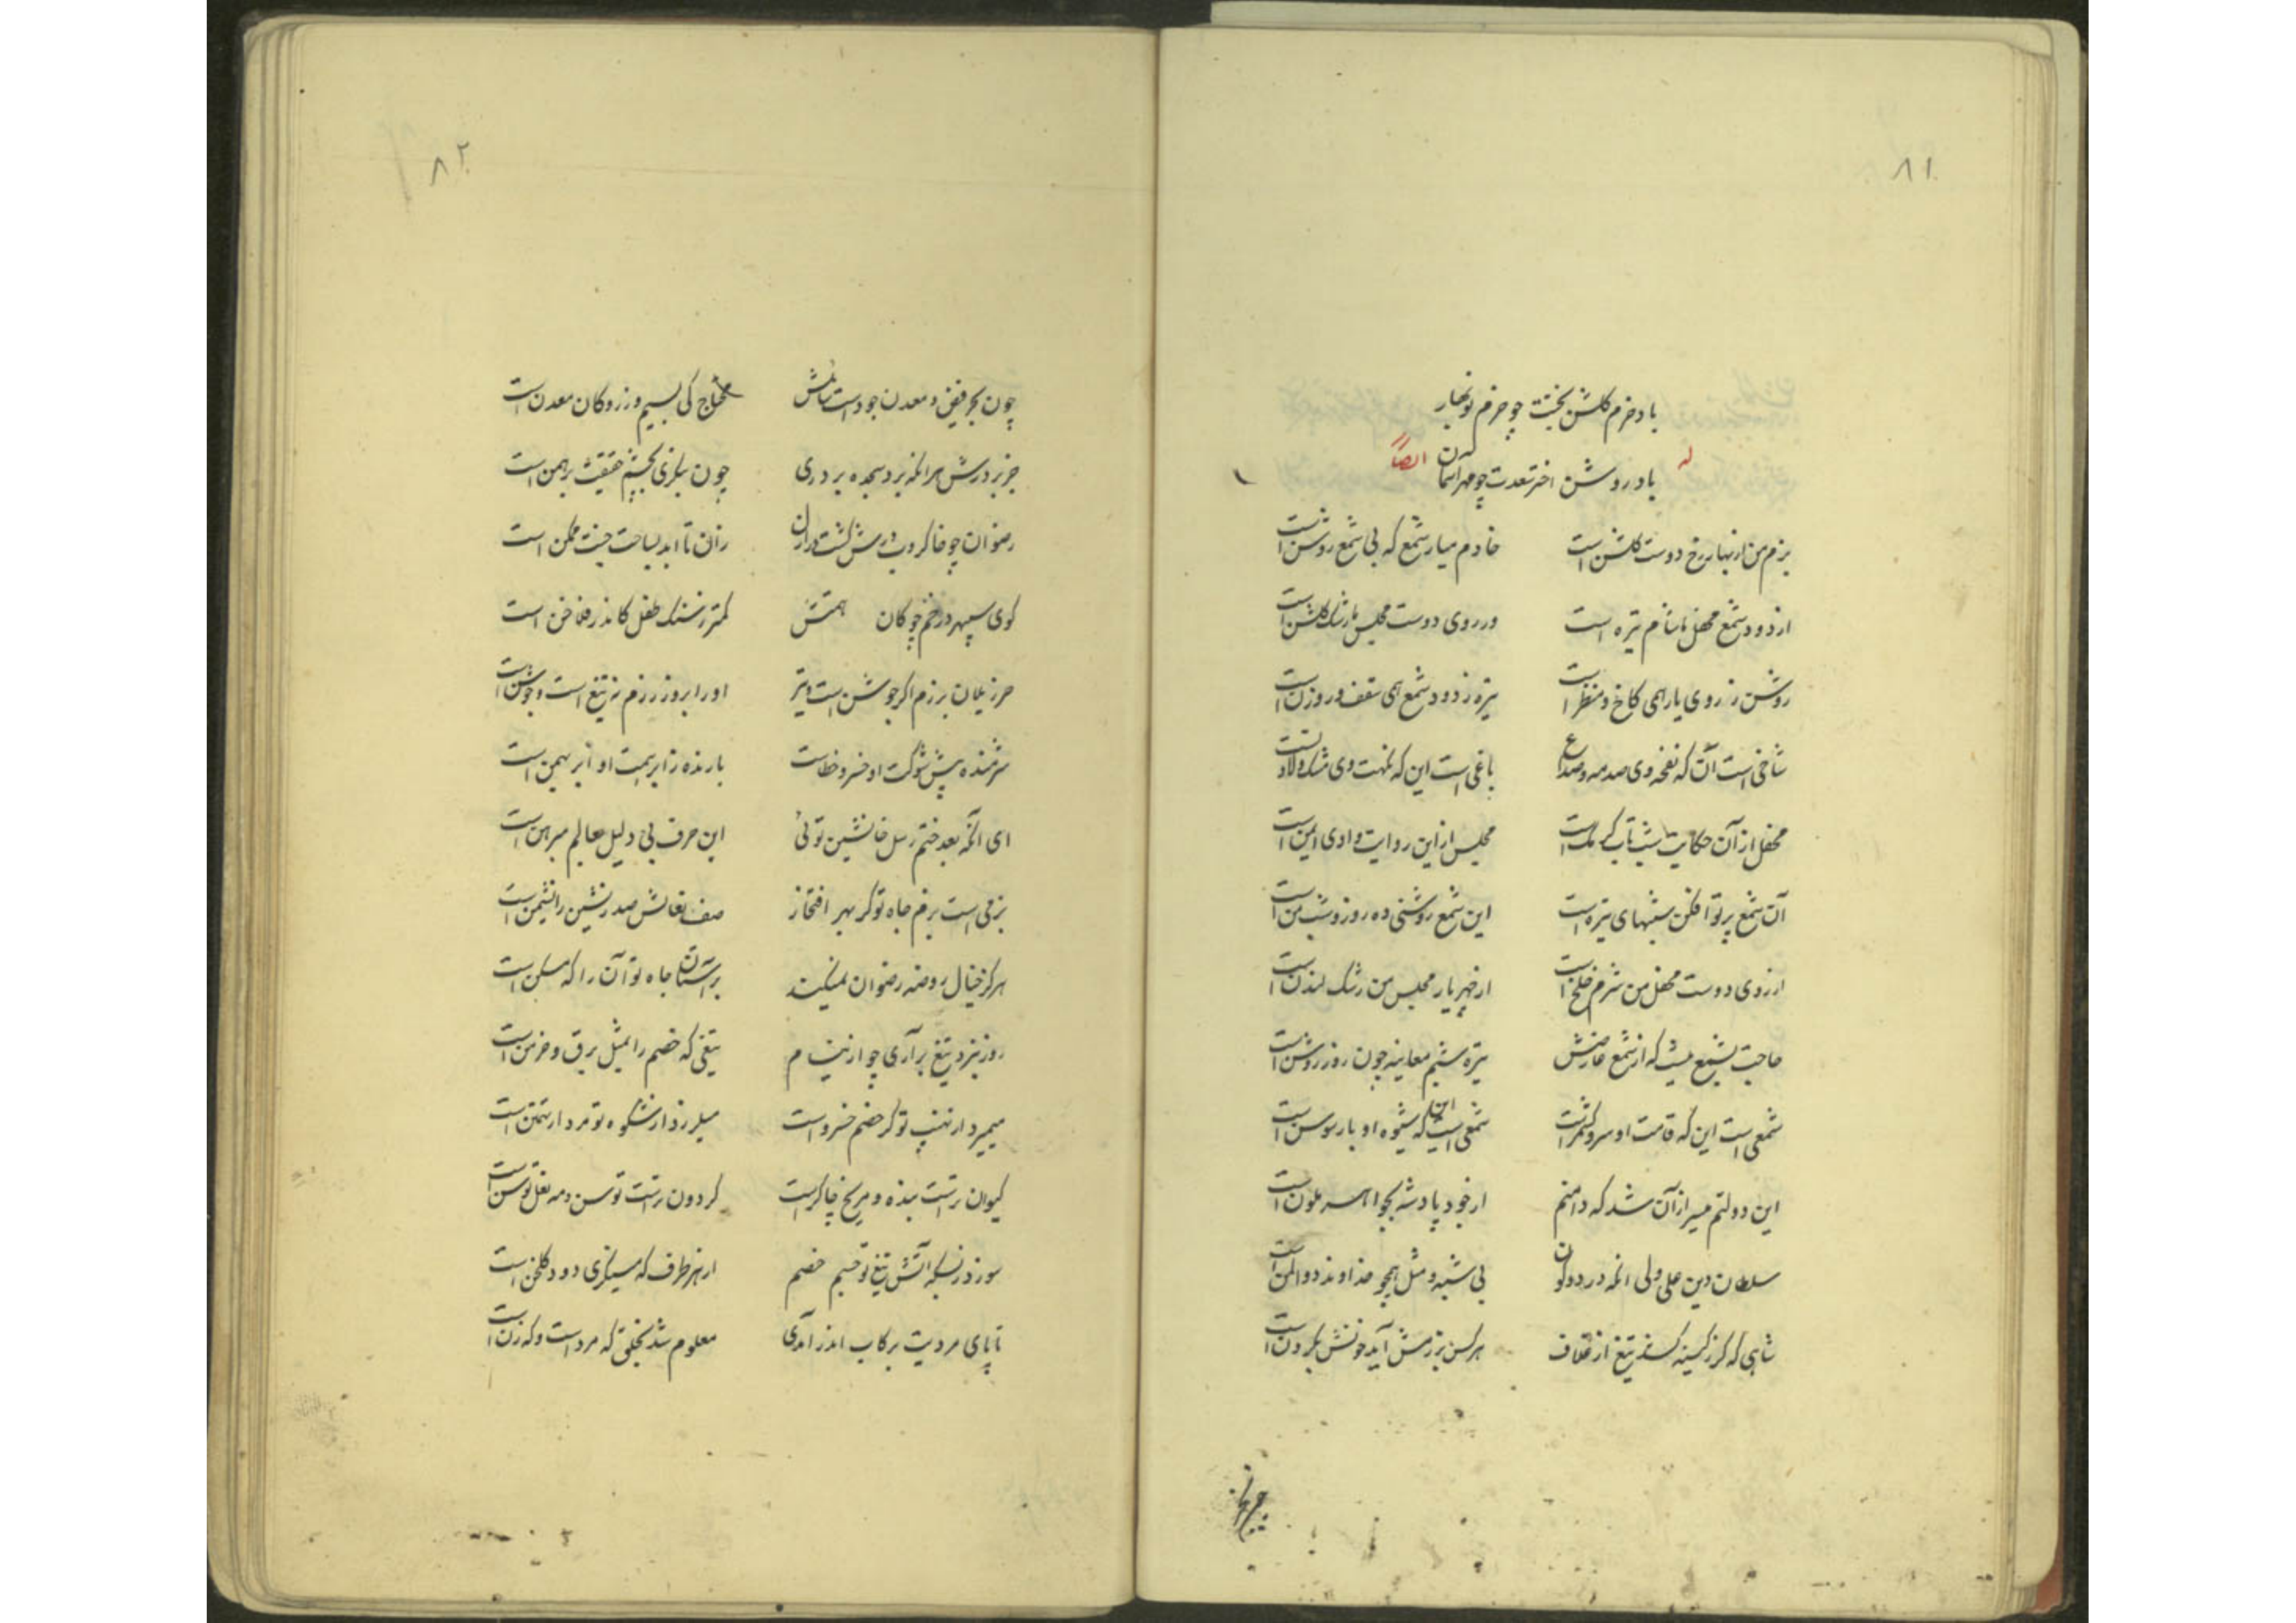 ۸۱
باد خرم گلشن بختت چو خرم نوبهار
له باد روشن اختر سعدت چو مهر آسمان ایضاً
بزم من از بهار رخ دوست گلشن است خادم میار شمع که بی شمع روشن است
از دود شمع محفل ما شام تیره است وز روی دوست مجلس ما رشک گلشن است
روشن ز روی یار همی کاخ و منظر است تیره ز دود شمع همی سقف و روزن است
شاخی است آن که نفحه وی صدمه و صداع باغی است این که نکهت وی مشک و لادنست
محفل از آن حکایت شب تاب کرمک است مجلس از این روایت وادی ایمن است
آن شمع پرتو افکن شبهای تیره است این شمع روشنی ده روز و شب من است
از روی دوست محفل من شرم خلخ است از چهر یار مجلس من رشک لندن است
حاجت بشمع نیست که از شمع عارضش تیره شبم معاینه چون روز روشن است
شمعی است این که قامت او سرو کشمر است شمعی است این که شیوه او بار سوسن است
این دولتم میسر از آن شد که دامنم از جود پادشه بجواهر ملون است
سلطان دین علی ولی آنکه در دو کون بی شبه و مثل همچو خداوند ذوالمن است
شاهی که گر ز کینه کشد تیغ از غلاف هر کس برزمش آید خونش بگردن است
۸۲
چون بحر فیض و معدن جود است محتاج کی بسیم و زر و کان معدن است
جز بر درش هر آنکه برد سجده بر دری چون بنگری بچشم حقیقت برهمن است
رضوان چو خاکروب درش گشت در ازان تا ابد بساحت جنت ممکن است
گوی سپهر در خم چوگان همتش کمتر ز سنگ طفل کاندر فلاخن است
حرز یلان برزم اگر جوشن است و تیر او را بروز رزم نه تیغ است و جوشن است
شرمنده پیش شوکت او خسرو خطاست بارنده ز ابر همت او ابر بهمن است
ای آنکه بعد ختم رسل جانشین توئی این حرف بی دلیل بعالم مبرهن است
بزمی است بزم جاه تو کز بهر افتخار صف نعالش صدرنشین را نشیمن است
هرگز خیال روضه رضوان نمیکند بر آستان جاه تو آن را که مسکن است
روز نبرد تیغ برآری چو از نیام تیغی که خصم را بمثل برق و خرمن است
میمیرد از نهیب تو گر خصم خسرو است میلرزد از شکوه تو مرد ار تهمتن است
کیوان تراست بنده و مریخ چاکر است گردون تراست توسن و مه نعل توسن است
سوزد ز بسکه آتش تیغ تو جسم خصم از هر طرف که مینگری دود گلخن است
تا پای مردیت برکاب اندر آمدی معلوم شد بخلق که مرد است و که زن است